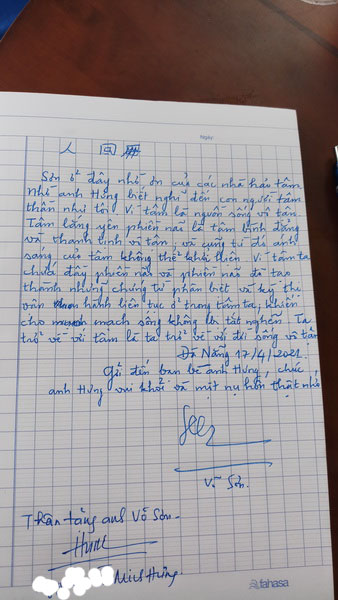 Ngày:
人 回
Sơn ở đây nhờ ơn của các nhà hảo tâm.
Nhờ anh Hưng biết nghĩ đến con người tâm
thần như tôi. Vì tâm là nguồn sống vô tận.
Tâm lắng yên phiền não là tâm bình đẳng
và thanh tịnh vô tận, và cũng từ đó ánh
sáng của tâm không thể khởi thiền. Vì tâm ta
chứa đầy phiền não và phiền não đã tạo
thành những chủng tử phân biệt và kỳ thị
vẫn hành liên tục ở trong tâm ta, khiến
cho mạch sống không lẽ tắt nghẽn. Ta
trở về với tâm là ta trở về với đời sống vô tận
Đà Nẵng 17/4/2021.
Gửi đến bạn bè anh Hưng, chúc
anh Hưng vui khỏi và một nụ hôn thật nhỏ
Võ Sơn.
Thân tặng anh Võ Sơn.
Hưng
Minh Hưng.
fahasa